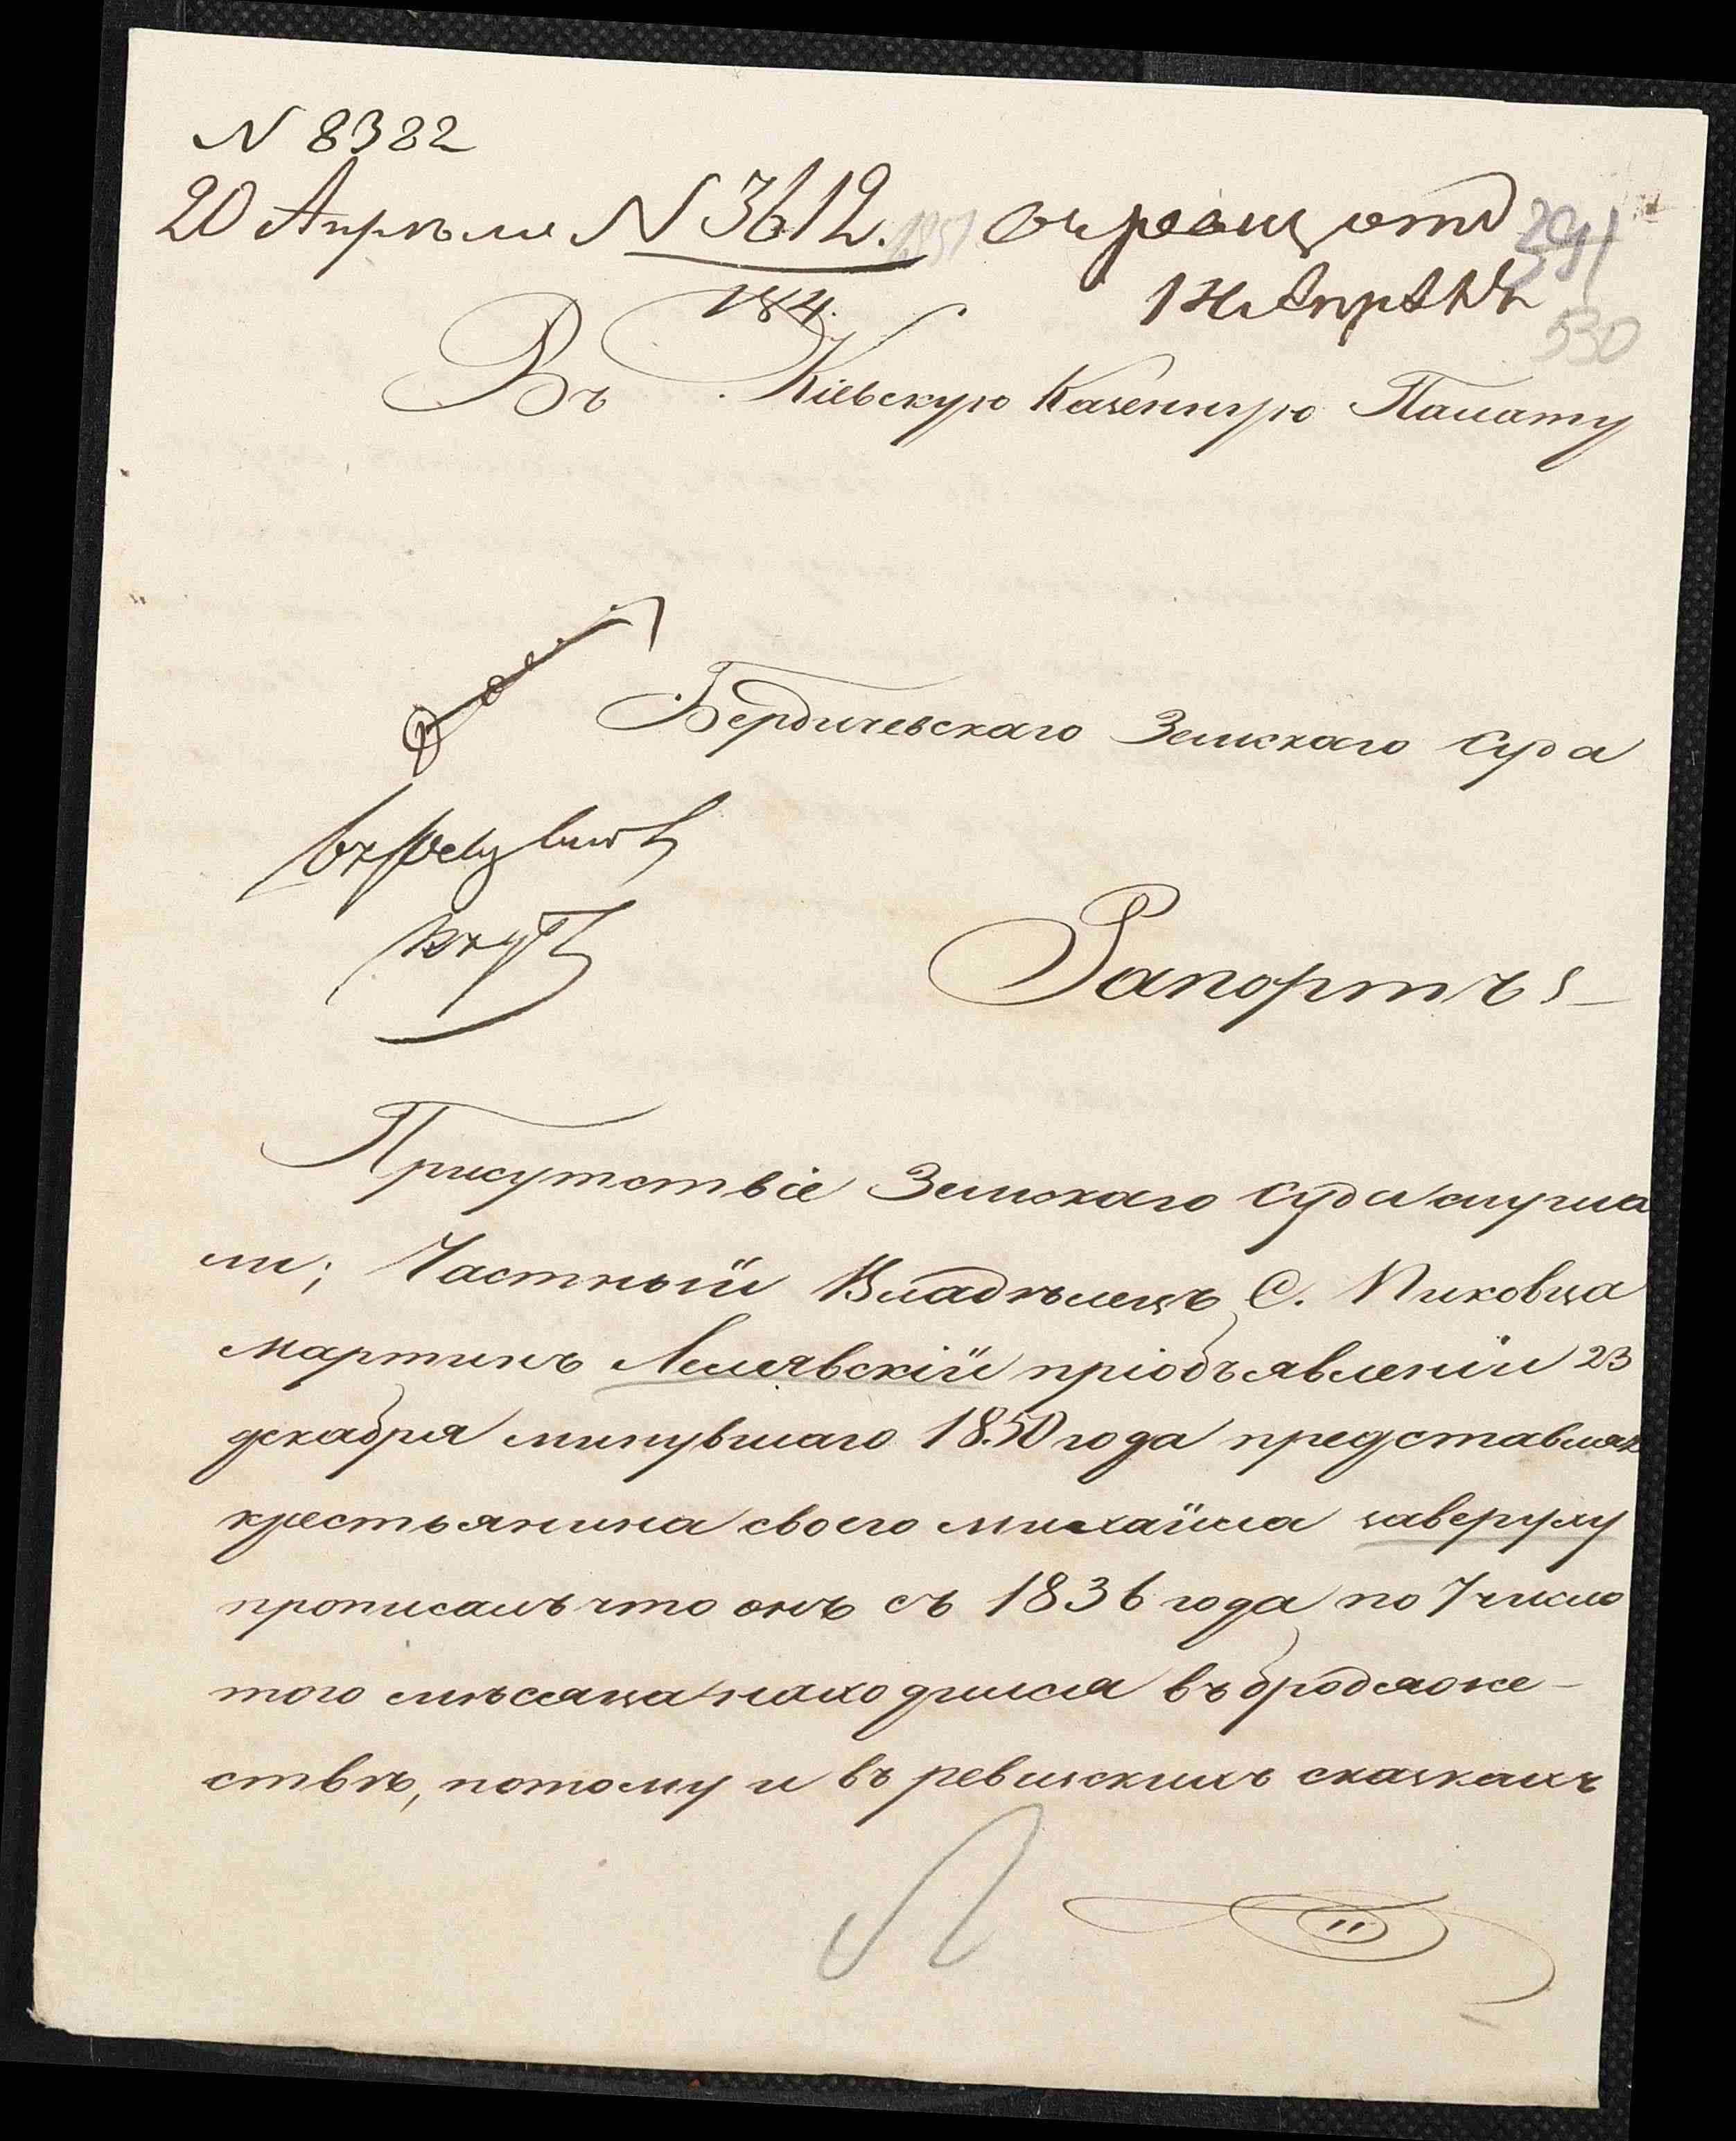 N 8382
20 Апрѣля N 3612. 1851
184.
291
530
Въ Кіевскую Казенную Палату
Бердичевскаго Земскаго Суда
Рапортъ
Присутствіе Земскаго Суда слуша
ли; Частный Владѣлецъ С. Пиковца
Мартинъ пріобъявленіи 23
декабря минувшаго 1850 года представляя
крестьянина своего михайла заверуху
прописалъ что онъ съ 1836 года по 7 число
того мѣсяца находился въ бродяже-
ствѣ, потому и въ ревизскихъ сказкахъ